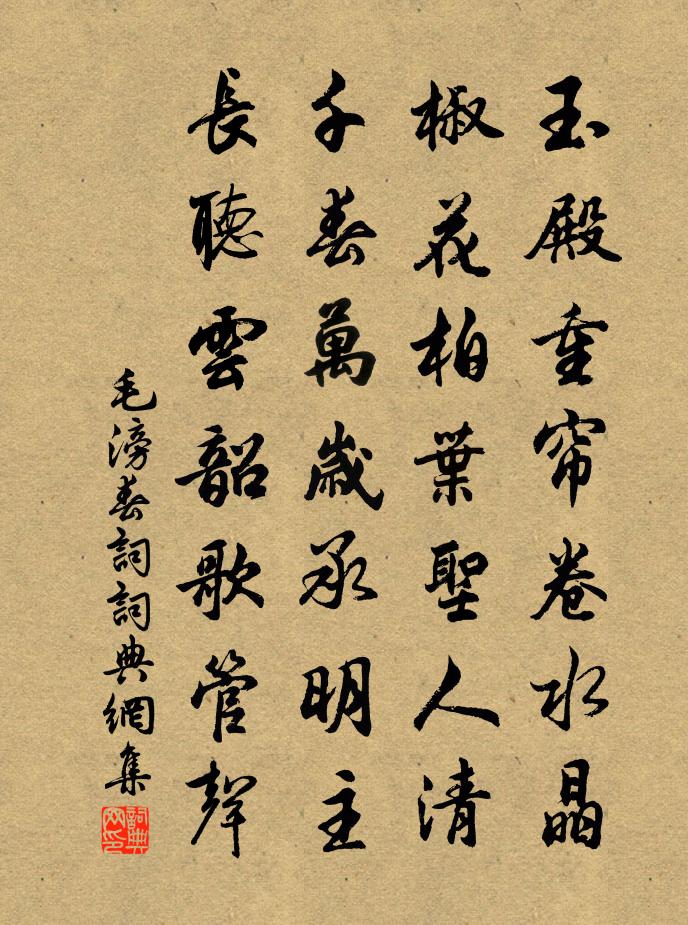 玉殿重帘卷水晶
椒花柏葉聖人清
千春萬歲承明主
長聽雲韶歌管聲
毛滂春詞詞典網集
詞典网印